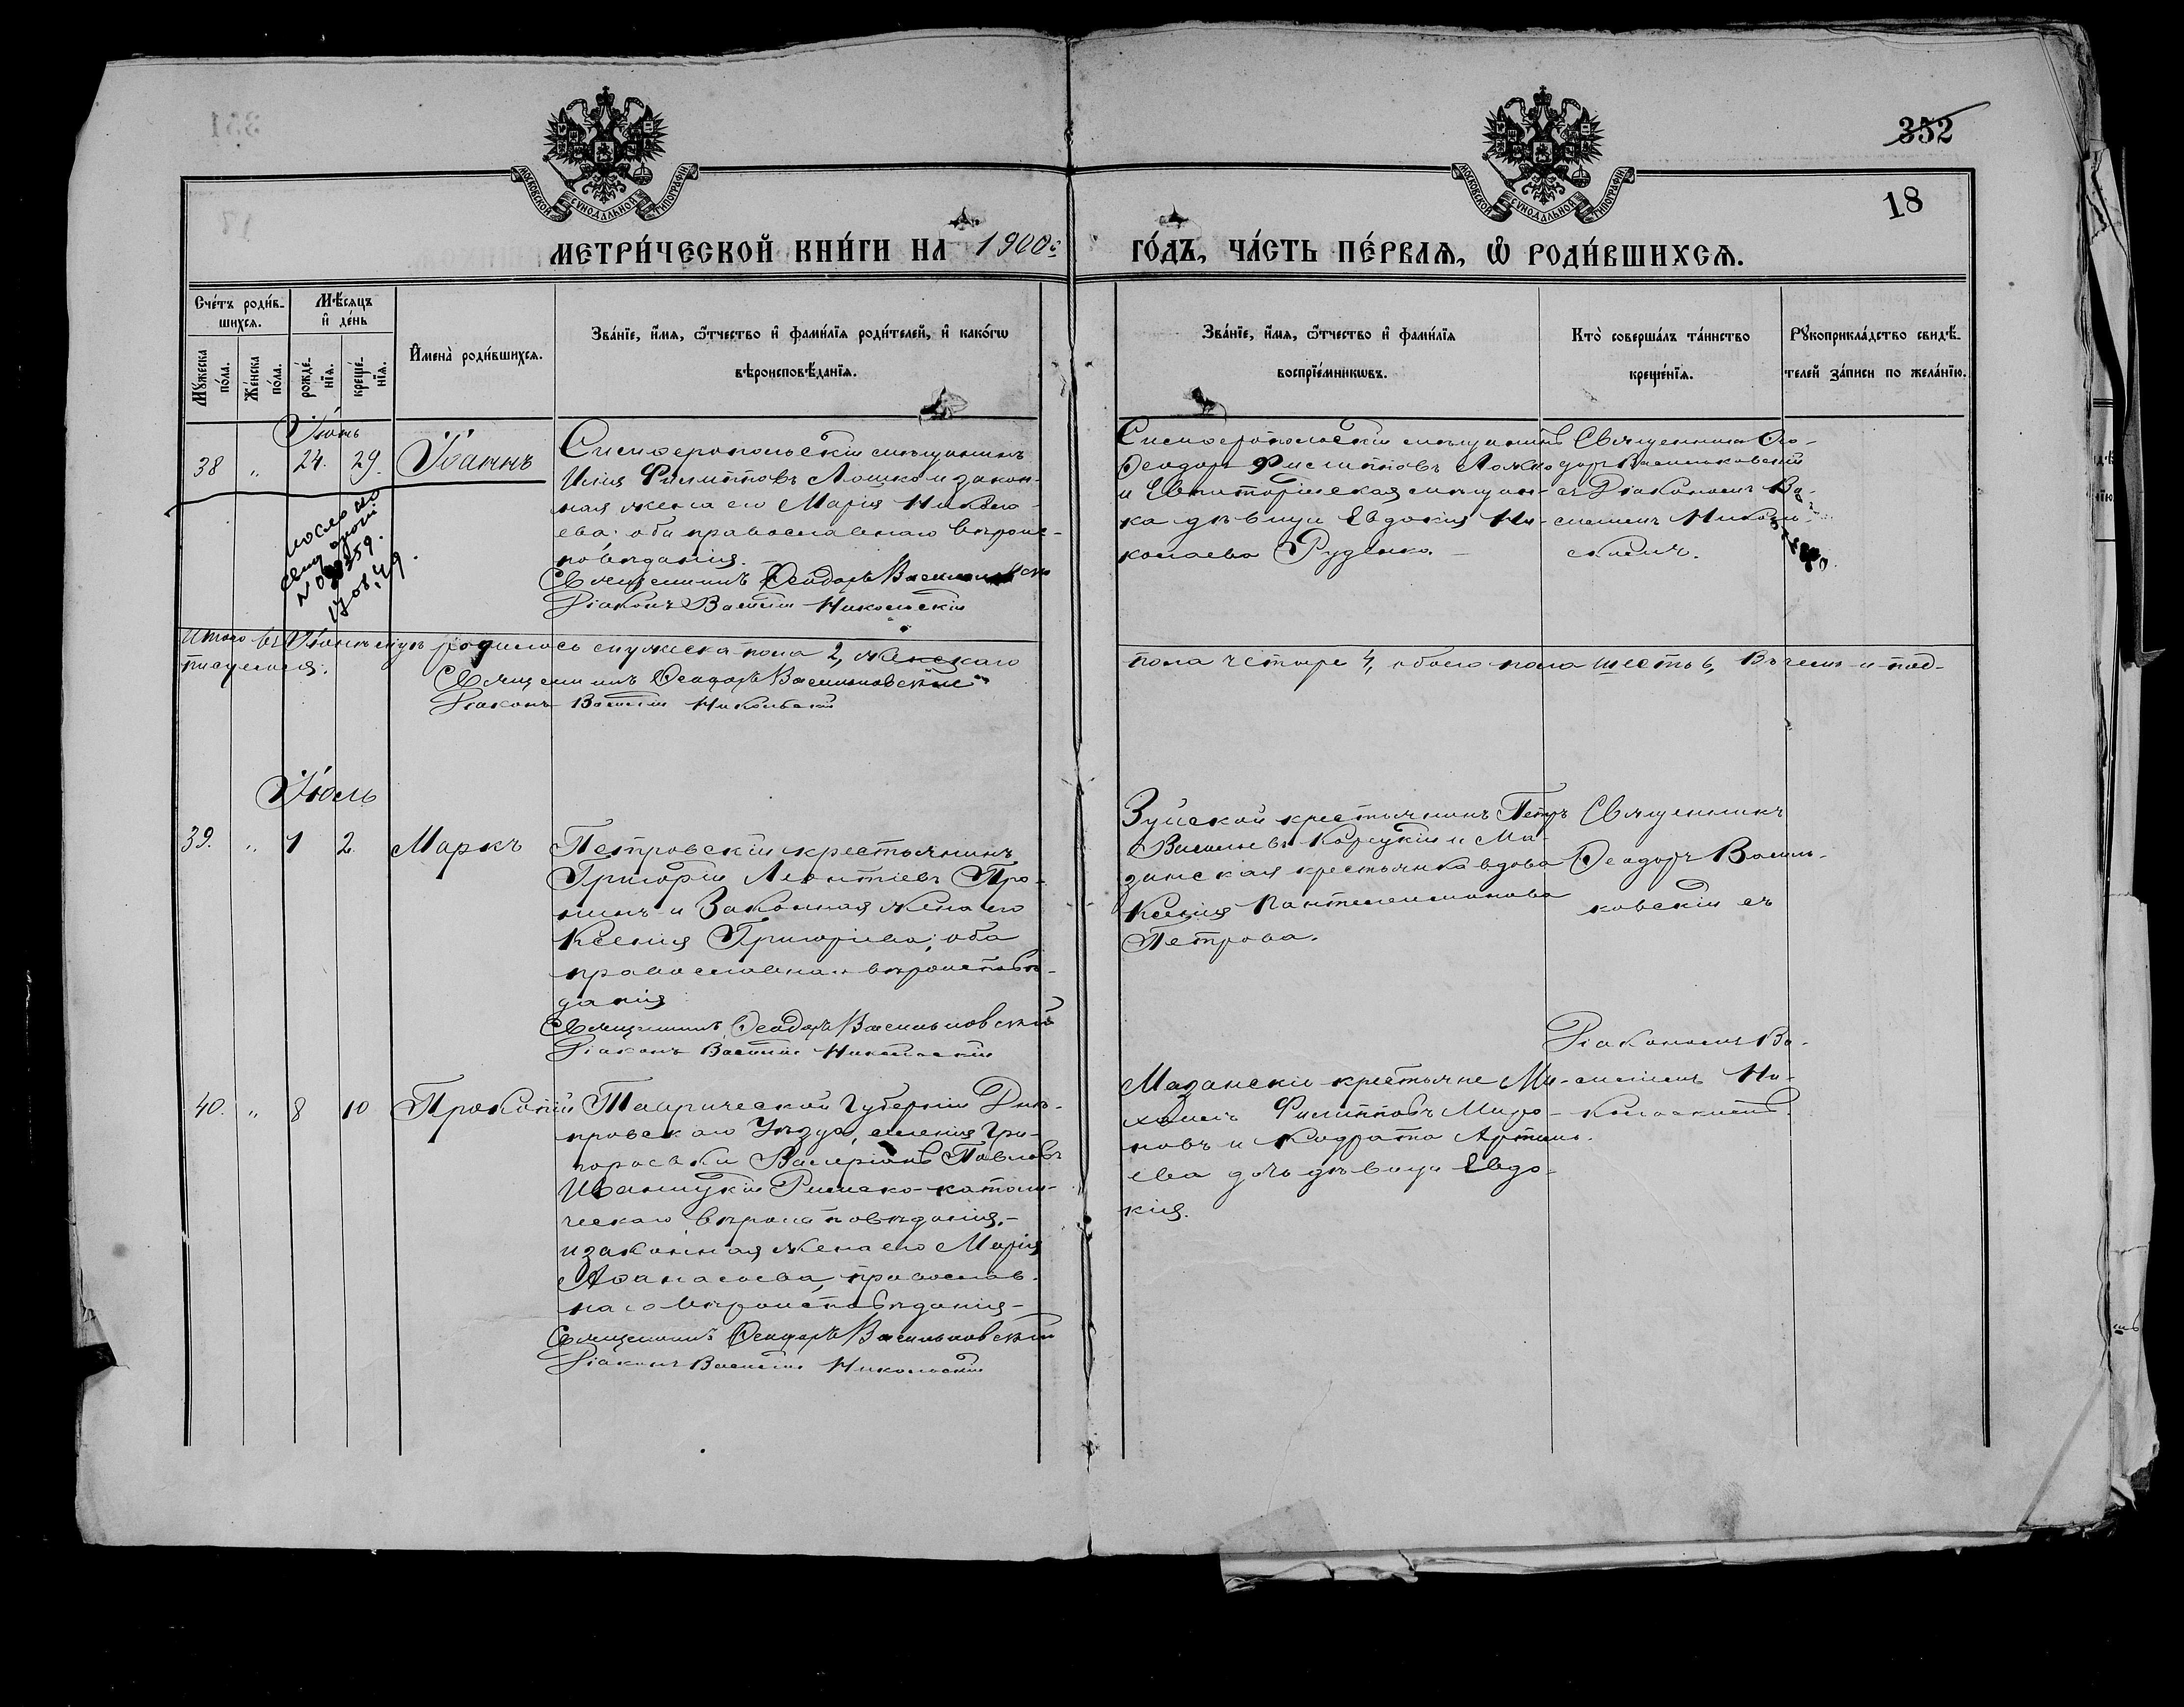 352
18
МОСКОВСКОЙ СѴНОДАЛЬНОЙ ТИПОГРАФІИ
МОСКОВСКОЙ СѴНОДАЛЬНОЙ ТИПОГРАФІИ
МЕТРИ́ЧЕСКОЙ КНИ́ГИ НА 1900й
ГО́ДЪ, ЧА́СТЬ ПЕ́РВАѦ, Ѽ РОДИ́ВШИХСѦ.
Сче́тъ роди́в-
шихсѧ.
Мꙋ́жеска по́ла.
Же́нска по́ла.
Мѣ́сѧцъ
и҆ де́нь
рожде́-
нїѧ.
креще́-
нїѧ.
И҆мена̀ роди́вшихсѧ.
Зва́нїе, и҆́мѧ, ѻ҆́тчество и҆ фами́лїѧ роди́телей, и҆ како́гѡ
вѣроисповѣ́данїѧ.
Зва́нїе, и҆́мѧ, ѻ҆́тчество и҆ фами́лїѧ
воспрїе́мникѡвъ.
Кто̀ соверша́лъ та́инство
креще́нїѧ.
Рꙋкоприкла́дство свидѣ́-
телей за́писи по жела́нїю.
Іюнь
38 „ 24. 29. Іоаннъ
Симферопольскій мѣщанинъ
Илія Филипповъ Ложко и закон-
ная жена его Марія Никола-
ева; оба православнаго вѣроис-
повѣданія.
Священникъ Ѳеодоръ Васильковскій
Діаконъ Василій Никольскій
Симферопольскій мѣщанинъ
Ѳеодоръ Филипповъ Ложко
и Евпаторійская мѣщан-
ка дѣвица Евдокія Ни-
колаева Руденко.
Священникъ Ѳео-
доръ Васильковскій
съ Діакономъ Ва-
силіемъ Николь-
скимъ.
Итого въ Іюнѣ мцѣ родилось мужеска пола 2, женскаго
пола четыре 4, обоего пола шесть 6, Въ чемъ и под-
писуемся:
Священникъ Ѳеодоръ Васильковскій
Діаконъ Василій Никольскій
Іюль
39. „ 1 2. Маркъ
Петровскій крестьянинъ
Григорій Леонтіевъ Про-
нинъ и Законная жена его
Ксенія Григоріева; оба
православнаго вѣроисповѣ-
данія
Священникъ Ѳеодоръ Васильковскій
Діаконъ Василій Никольскій
Зуйской крестьянинъ Петръ
Васильевъ Корсукій и Ма-
занская крестьянка вдова
Ксенія Пантелеимонова
Петрова.
Священникъ
Ѳеодоръ Василь-
ковскій съ
Діакономъ Ва-
силіемъ Ни-
кольскимъ.
40. „ 8 10 Прокопій
Таврической Губерніи Днѣ-
провскаго Уѣзда, селенія Гри-
горовки Валеріанъ Павловъ
Иваницкій Римско-католи-
ческаго вѣроисповѣданія,
и законная жена его Марія
Аѳанасьева, православ-
наго вѣроисповѣданія
Священникъ Ѳеодоръ Васильковскій
Діаконъ Василій Никольскій
Мазанскіе крестьяне Ми-
хаилъ Филипповъ Миро-
новъ и Кодрата Артемь-
ева дочь дѣвица Евдо-
кія.